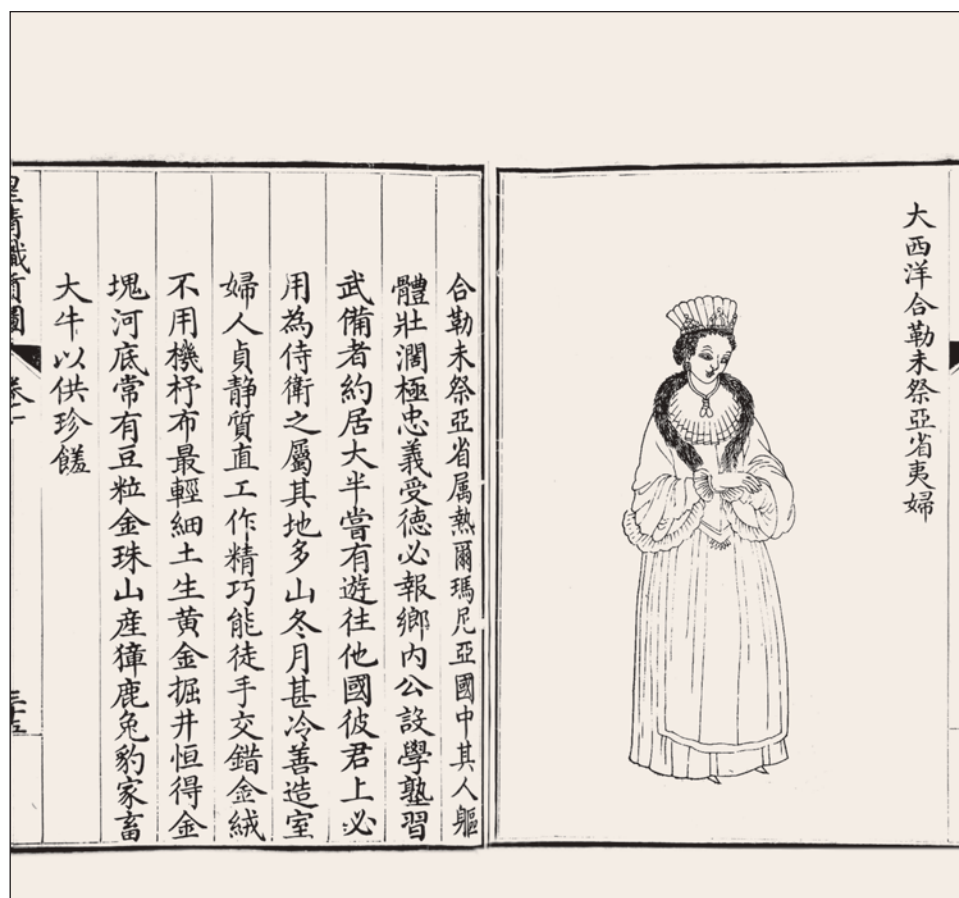 大西洋合勒未祭亞省夷婦
合勒未祭亞省属熱爾瑪尼亞國中其人軀
體壯濶極忠義受德必報鄉内公設學塾習
武備者約居大半嘗有遊往他國彼君上必
用為侍衛之屬其地多山冬月甚冷善造室
婦人貞靜質直工作精巧能徒手交錯金絨
不用機杼布最輕細土生黄金掘井恒得金
塊河底常有豆粒金珠山産獐鹿兔豹家畜
大牛以供珍饈
皇清職貢圖